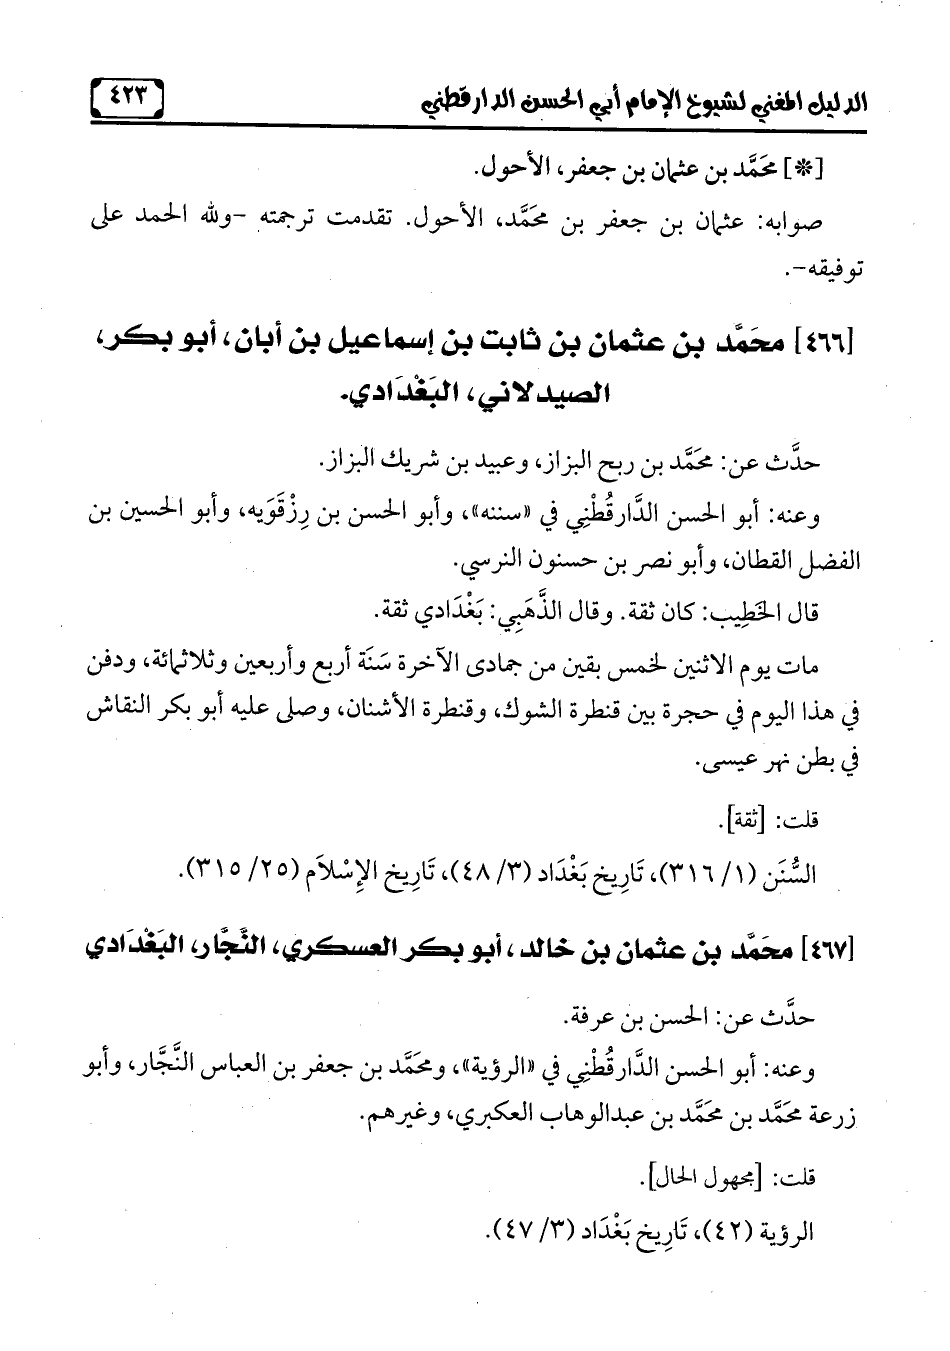 الدليل المغني لشيوخ الإمام أبي الحسن الدارقطني
٤٢٣
[*] محَمَّد بن عثمان بن جعفر، الأحول.
صوابه: عثمان بن جعفر بن محمَّد، الأحول. تقدمت ترجمته -ولله الحمد على
توفيقه-.
[٤٦٦] محَمَّد بن عثمان بن ثابت بن إسماعيل بن أبان، أبو بكر،
الصيدلاني، البَغْدَادي.
حدَّث عن: محَمَّد بن ربح البزاز، وعبيد بن شريك البزاز.
وعنه: أبو الحسن الدَّارقُطْنِي في «سننه»، وأبو الحسن بن رِزْقَوَيه، وأبو الحسين بن
الفضل القطان، وأبو نصر بن حسنون النرسي.
قال الخَطِيب: كان ثقة. وقال الذَّهَبِي: بَغْدَادي ثقة.
مات يوم الاثنين لخمس بقين من جمادى الآخرة سَنَة أربع وأربعين وثلاثمائة، ودفن
في هذا اليوم في حجرة بين قنطرة الشوك، وقنطرة الأشنان، وصلى عليه أبو بكر النقاش
في بطن نهر عيسى.
قلت: [ثقة].
السُّنَن (١/ ٣١٦)، تَارِيخ بَغْدَاد (٣/ ٤٨)، تَارِيخ الإِسْلَام (٢٥/ ٣١٥).
[٤٦٧] محَمَّد بن عثمان بن خالد، أبو بكر العسكري، النَّجَّار، البَغْدَادي
حدَّث عن: الحسن بن عرفة.
وعنه: أبو الحسن الدَّارقُطْنِي في «الرؤية»، ومحَمَّد بن جعفر بن العباس النَّجَّار، وأبو
زرعة محَمَّد بن محَمَّد بن عبدالوهاب العكبري، وغيرهم.
قلت: [مجهول الحال].
الرؤية (٤٢)، تَارِيخ بَغْدَاد (٣/ ٤٧).